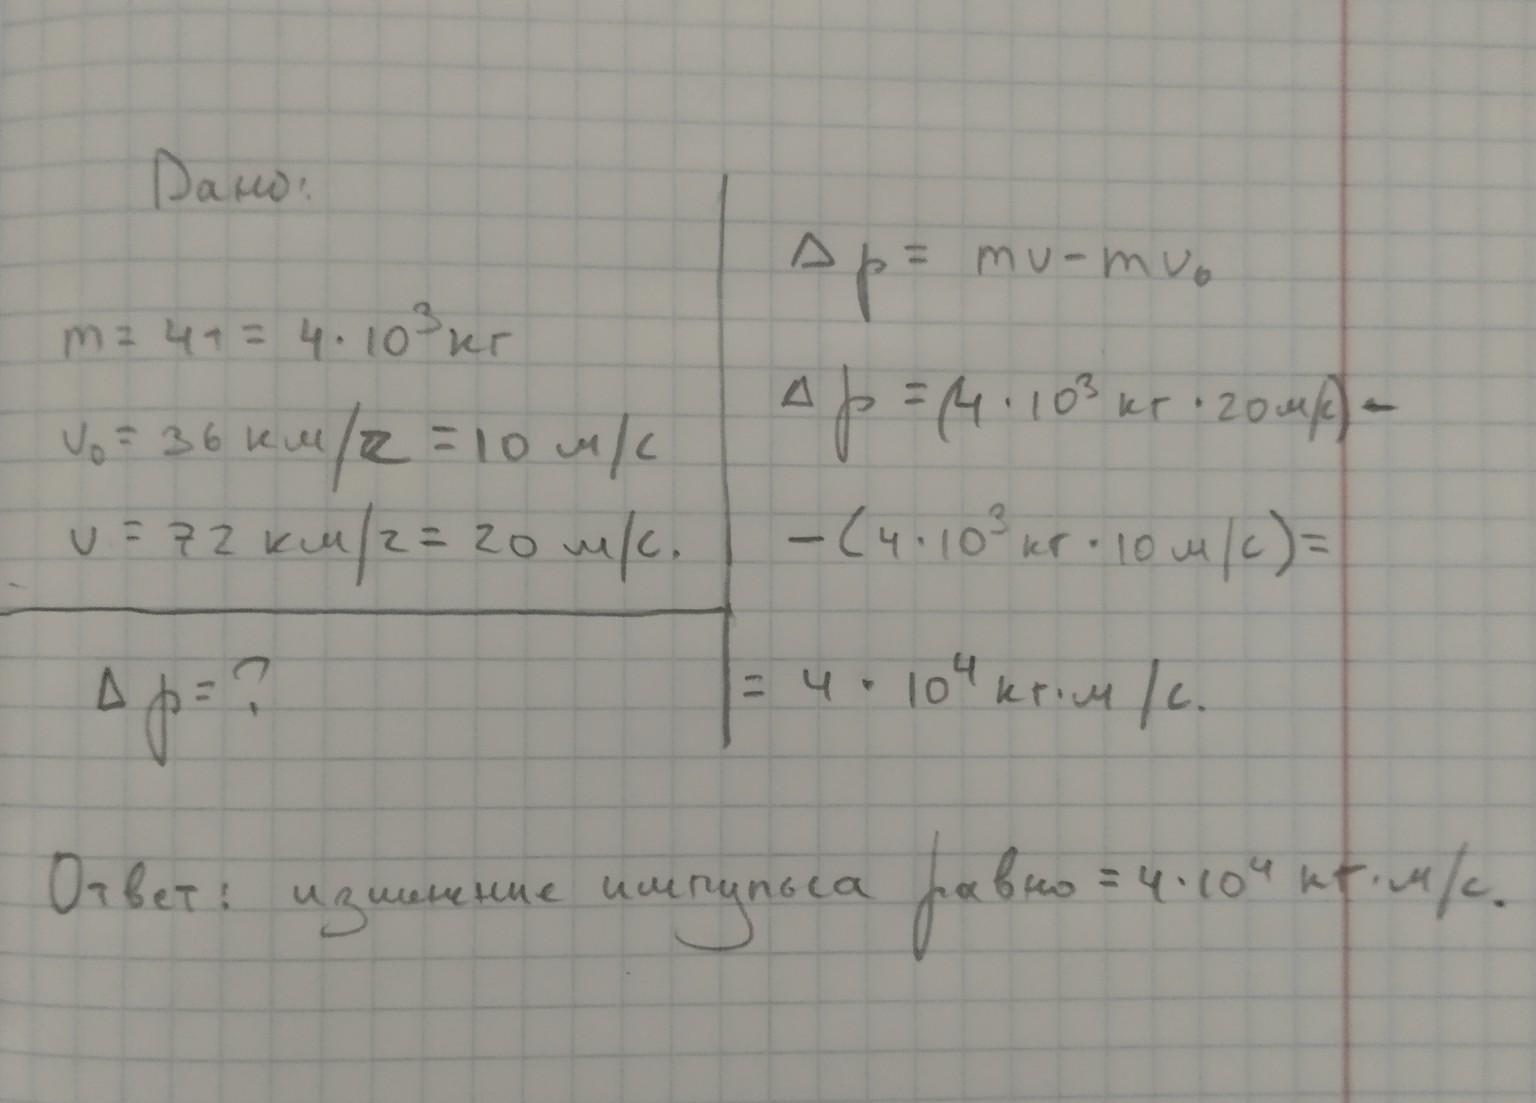 Дано:
m = 4т = 4·10³ кг
v₀ = 36 км/ч = 10 м/с
v = 72 км/ч = 20 м/с.
Δp = ?
Δp = mv - mv₀
Δp = (4·10³ кг·20м/с) -
- (4·10³ кг·10 м/с) =
= 4·10⁴ кг·м/с.
Ответ: изменение импульса равно = 4·10⁴ кг·м/с.